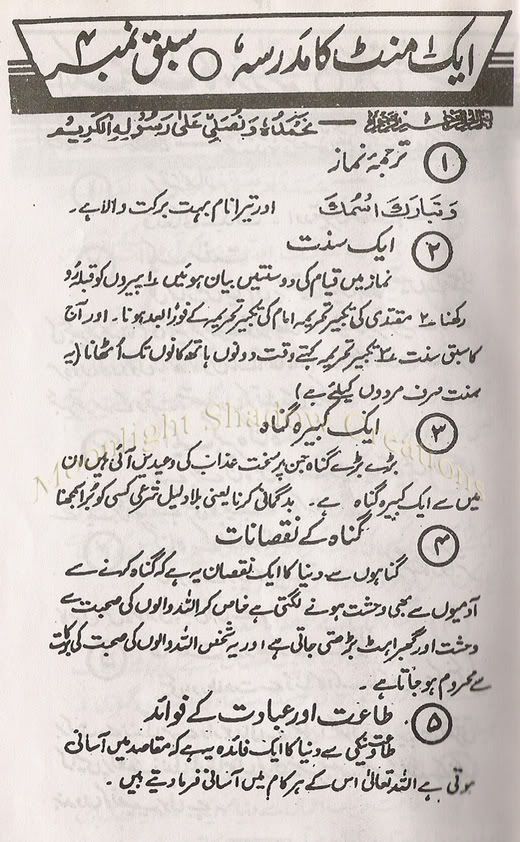 ایک منٹ کا مدرسہ، ○ سبق نمبر ۴
نَحْمَدُہٗ وَ نُصَلِّیْ عَلٰی رَسُوْلِہِ الْکَرِیْمِ
۱ ترجمۂ نماز
وَتَبَارَكَ اسْمُكَ اور تیرا نام بہت برکت والا ہے۔
۲ ایک سنت
نماز میں قیام کی دو سنتیں بیان ہوئیں ۱ پیروں کو قبلہ رُو
رکھنا ۲ مقتدی کی تکبیر تحریمہ امام کی تکبیر تحریمہ کے فورًا بعد ہونا۔ اور آج
کا سبق سنت ۳ تکبیر تحریمہ کہتے وقت دونوں ہاتھ کانوں تک اُٹھانا (یہ
سنت صرف مردوں کیلئے ہے)
۳ ایک کبیرہ گناہ
بڑے بڑے گناہ جن پر سخت عذاب کی وعیدیں آئی ہیں ان
میں سے ایک کبیرہ گناہ ہے۔ بدگمانی کرنا یعنی بلا دلیل شرعی کسی کو بُرا سمجھنا
۴ گناہ کے نقصانات
گناہوں سے دنیا کا ایک نقصان یہ ہے کہ گناہ کرنے سے
آدمیوں سے بھی وحشت ہونے لگتی ہے خاص کر اللہ والوں کی صحبت سے
وحشت اور گھبراہٹ بڑھتی جاتی ہے اور یہ شخص اللہ والوں کی صحبت کی برکات
سے محروم ہو جاتا ہے۔
۵ طاعت اور عبادت کے فوائد
طاعت و نیکی سے دنیا کا ایک فائدہ یہ ہے کہ مقاصد میں آسانی
ہوتی ہے اللہ تعالیٰ اس کے ہر کام میں آسانی فرما دیتے ہیں۔
Moonlight Shadow Creations